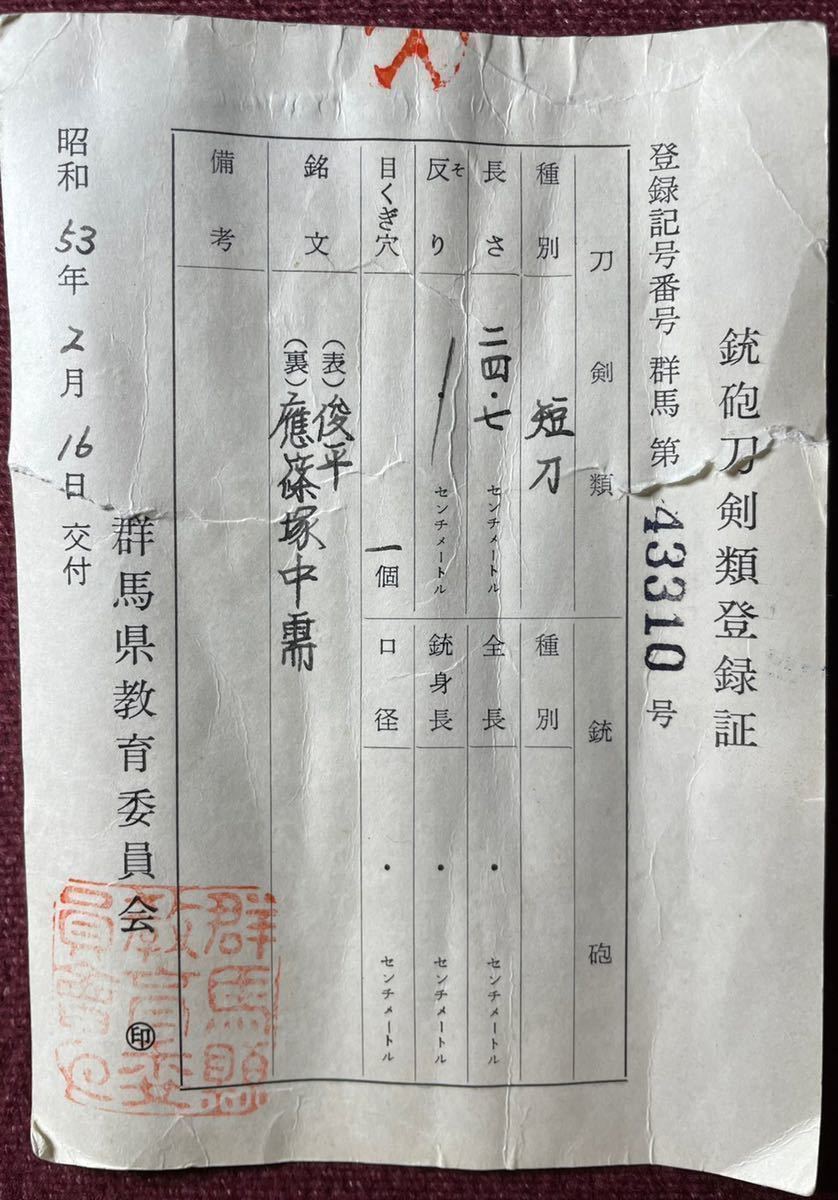 銃砲刀剣類登録証
登録記号番号 群馬 第 43310 号
刀剣類
種別 短刀
長さ 二四・七 センチメートル
反り そ ・ センチメートル
目くぎ穴 一個
銘文 (表)俊平
(裏)應篠塚中需
備考
銃砲
種別
全長 ・ センチメートル
銃身長 ・ センチメートル
口径 ・ センチメートル
昭和53年2月16日交付
群馬県教育委員会 ㊞
群馬縣
教育委
員會